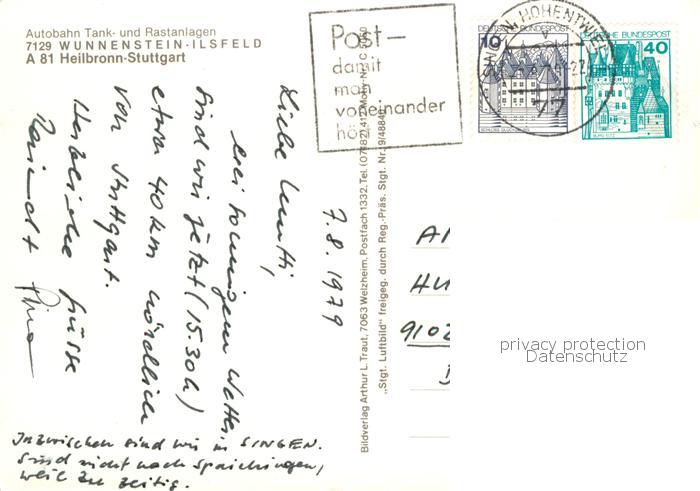 Autobahn Tank- und Rastanlagen
7129 WUNNENSTEIN-ILSFELD
A 81 Heilbronn-Stuttgart
Post-
damit
man
voneinander
hört
SINGEN, HOHENTWIEL
77
10
DEUTSCHE BUNDESPOST
SCHLOSS GLÜCKSBURG
DEUTSCHE BUNDESPOST
40
BURG ELTZ
7.8.1979
Liebe Mutti,
bei sonnigem Wetter
sind wir jetzt (15.30h)
etwa 40 km nördlich
von Stuttgart.
Herzliche Grüsse
Inzwischen sind wir in SINGEN.
Sind nicht nach Spaichingen,
weil zu zeitig.
Bildverlag Arthur L. Traut, 7063 Welzheim, Postfach 1332, Tel. (07182)
„Stgt. Luftbild" freigeg. durch Reg.-Präs. Stgt. Nr. 9/48845
AR
HU
9102
privacy protection
Datenschutz